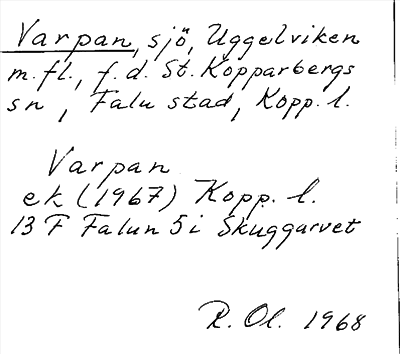 Varpan, sjö, Uggelviken
m.fl., f.d. St. Kopparbergs
sn, Falu stad, Kopp. l.
Varpan
ek (1967) Kopp. l.
13 F Falun 5 i Skuggarvet
R. Ol. 1968